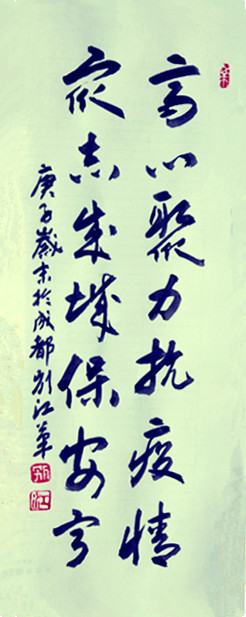 齐心聚力抗疫情
众志成城保安宁
庚子歲末於成都江草